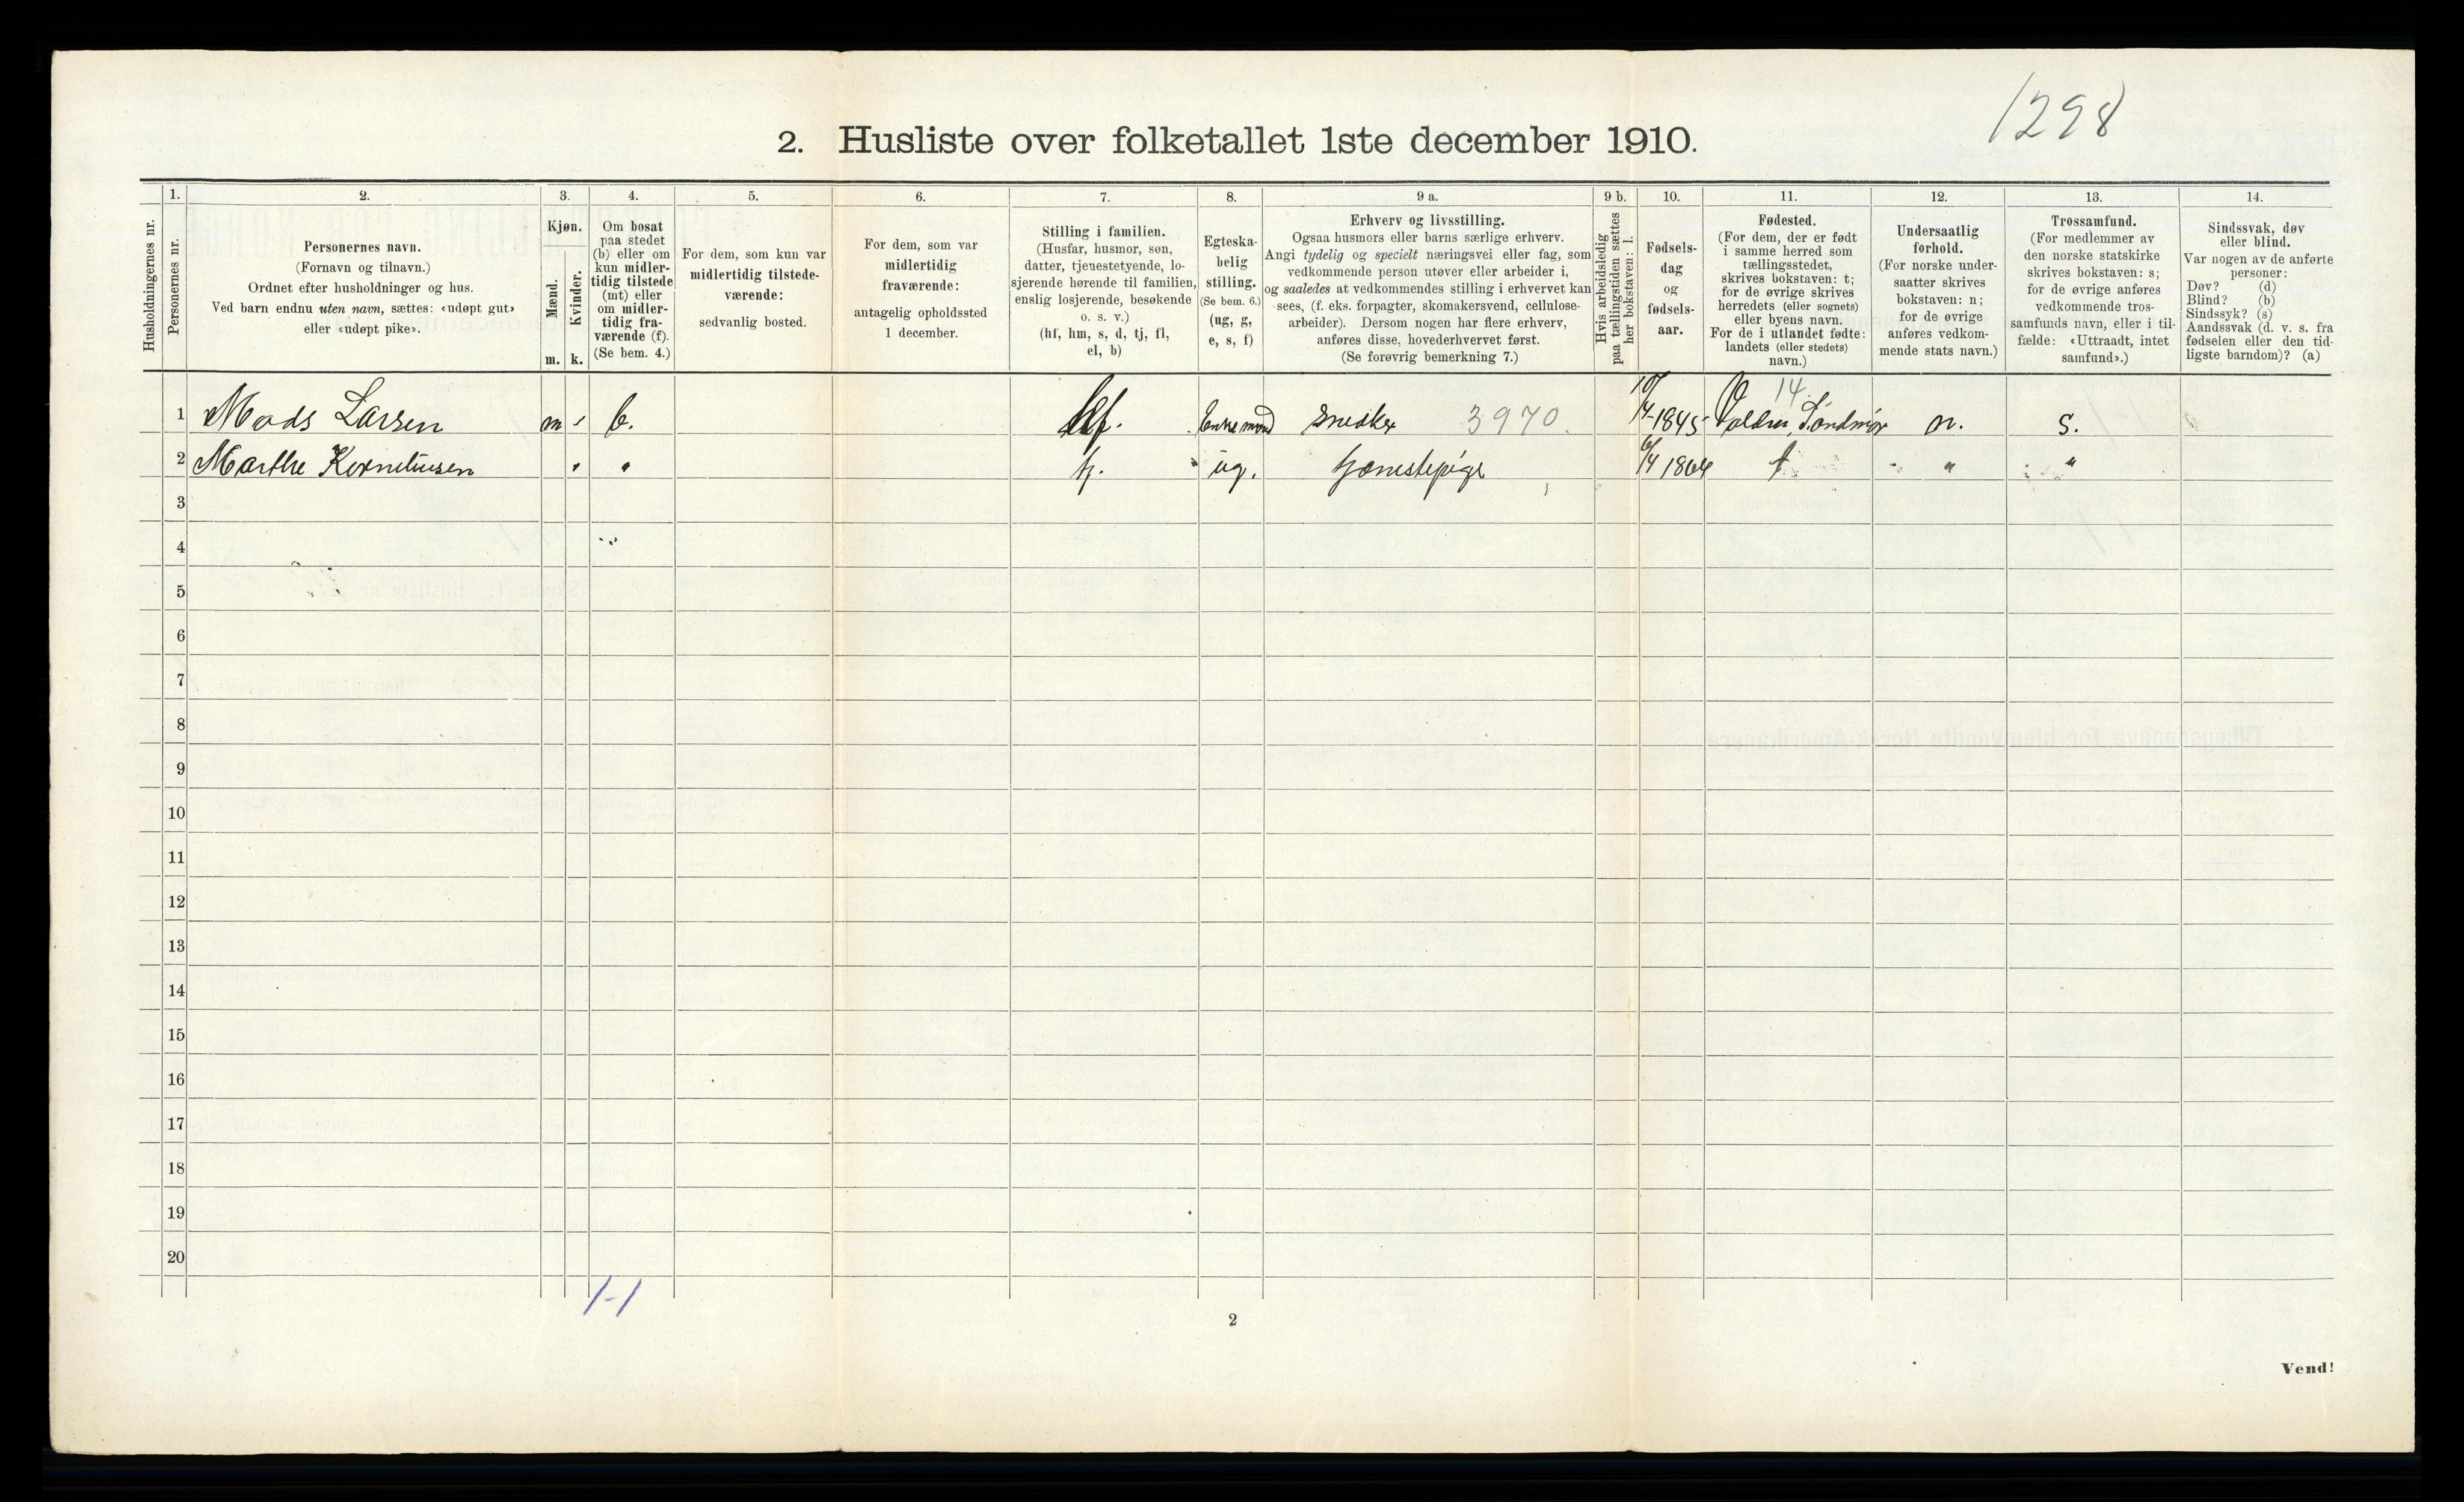 1298
2. Husliste over folketallet 1ste december 1910.
Husholdningernes nr.
1.
Personernes nr.
2.
Personernes navn.
(Fornavn og tilnavn.)
Ordnet efter husholdninger og hus.
Ved barn endnu uten navn, sættes: «udøpt gut»
eller «udøpt pike».
3.
Kjøn.
Mænd.
Kvinder.
m. k.
4.
Om bosat
paa stedet
(b) eller om
kun midler-
tidig tilstede
(mt) eller
om midler-
tidig fra-
værende (f).
(Se bem. 4.)
5.
For dem, som kun var
midlertidig tilstede-
værende:
sedvanlig bosted.
6.
For dem, som var
midlertidig
fraværende:
antagelig opholdssted
1 december.
7.
Stilling i familien.
(Husfar, husmor, søn,
datter, tjenestetyende, lo-
sjerende hørende til familien,
enslig losjerende, besøkende
o. s. v.)
(hf, hm, s, d, tj, fl,
el, b)
8.
Egteska-
belig
stilling.
(Se bem. 6.)
(ug, g,
e, s, f)
9 a.
Erhverv og livsstilling.
Ogsaa husmors eller barns særlige erhverv.
Angi tydelig og specielt næringsvei eller fag, som
vedkommende person utøver eller arbeider i,
og saaledes at vedkommendes stilling i erhvervet kan
sees, (f. eks. forpagter, skomakersvend, cellulose-
arbeider). Dersom nogen har flere erhverv,
anføres disse, hovederhvervet først.
(Se forøvrig bemerkning 7.)
9 b.
Hvis arbeidsledig
paa tællingstiden sættes
her bokstaven: l.
10.
Fødsels-
dag
og
fødsels-
aar.
11.
Fødested.
(For dem, der er født
i samme herred som
tællingsstedet,
skrives bokstaven: t;
for de øvrige skrives
herredets (eller sognets)
eller byens navn.
For de i utlandet fødte:
landets (eller stedets)
navn.)
12.
Undersaatlig
forhold.
(For norske under-
saatter skrives
bokstaven: n;
for de øvrige
anføres vedkom-
mende stats navn.)
13.
Trossamfund.
(For medlemmer av
den norske statskirke
skrives bokstaven: s;
for de øvrige anføres
vedkommende tros-
samfunds navn, eller i til-
fælde: «Uttraadt, intet
samfund».)
14.
Sindssvak, døv
eller blind.
Var nogen av de anførte
personer:
Døv? (d)
Blind? (b)
Sindssyk? (s)
Aandssvak (d. v. s. fra
fødselen eller den tid-
ligste barndom)? (a)
14.
1 Mads Larsen m b. hf. Enkemand snedker 3970. 10/4-1845 Volden, Söndmör n. s.
2 Marthe Korneliusen " " tj. ug. tjenestepige 6/4 1864 t " "
3
4
5
6
7
8
9
10
11
12
13
14
15
16
17
18
19
20
1-1
2
Vend!